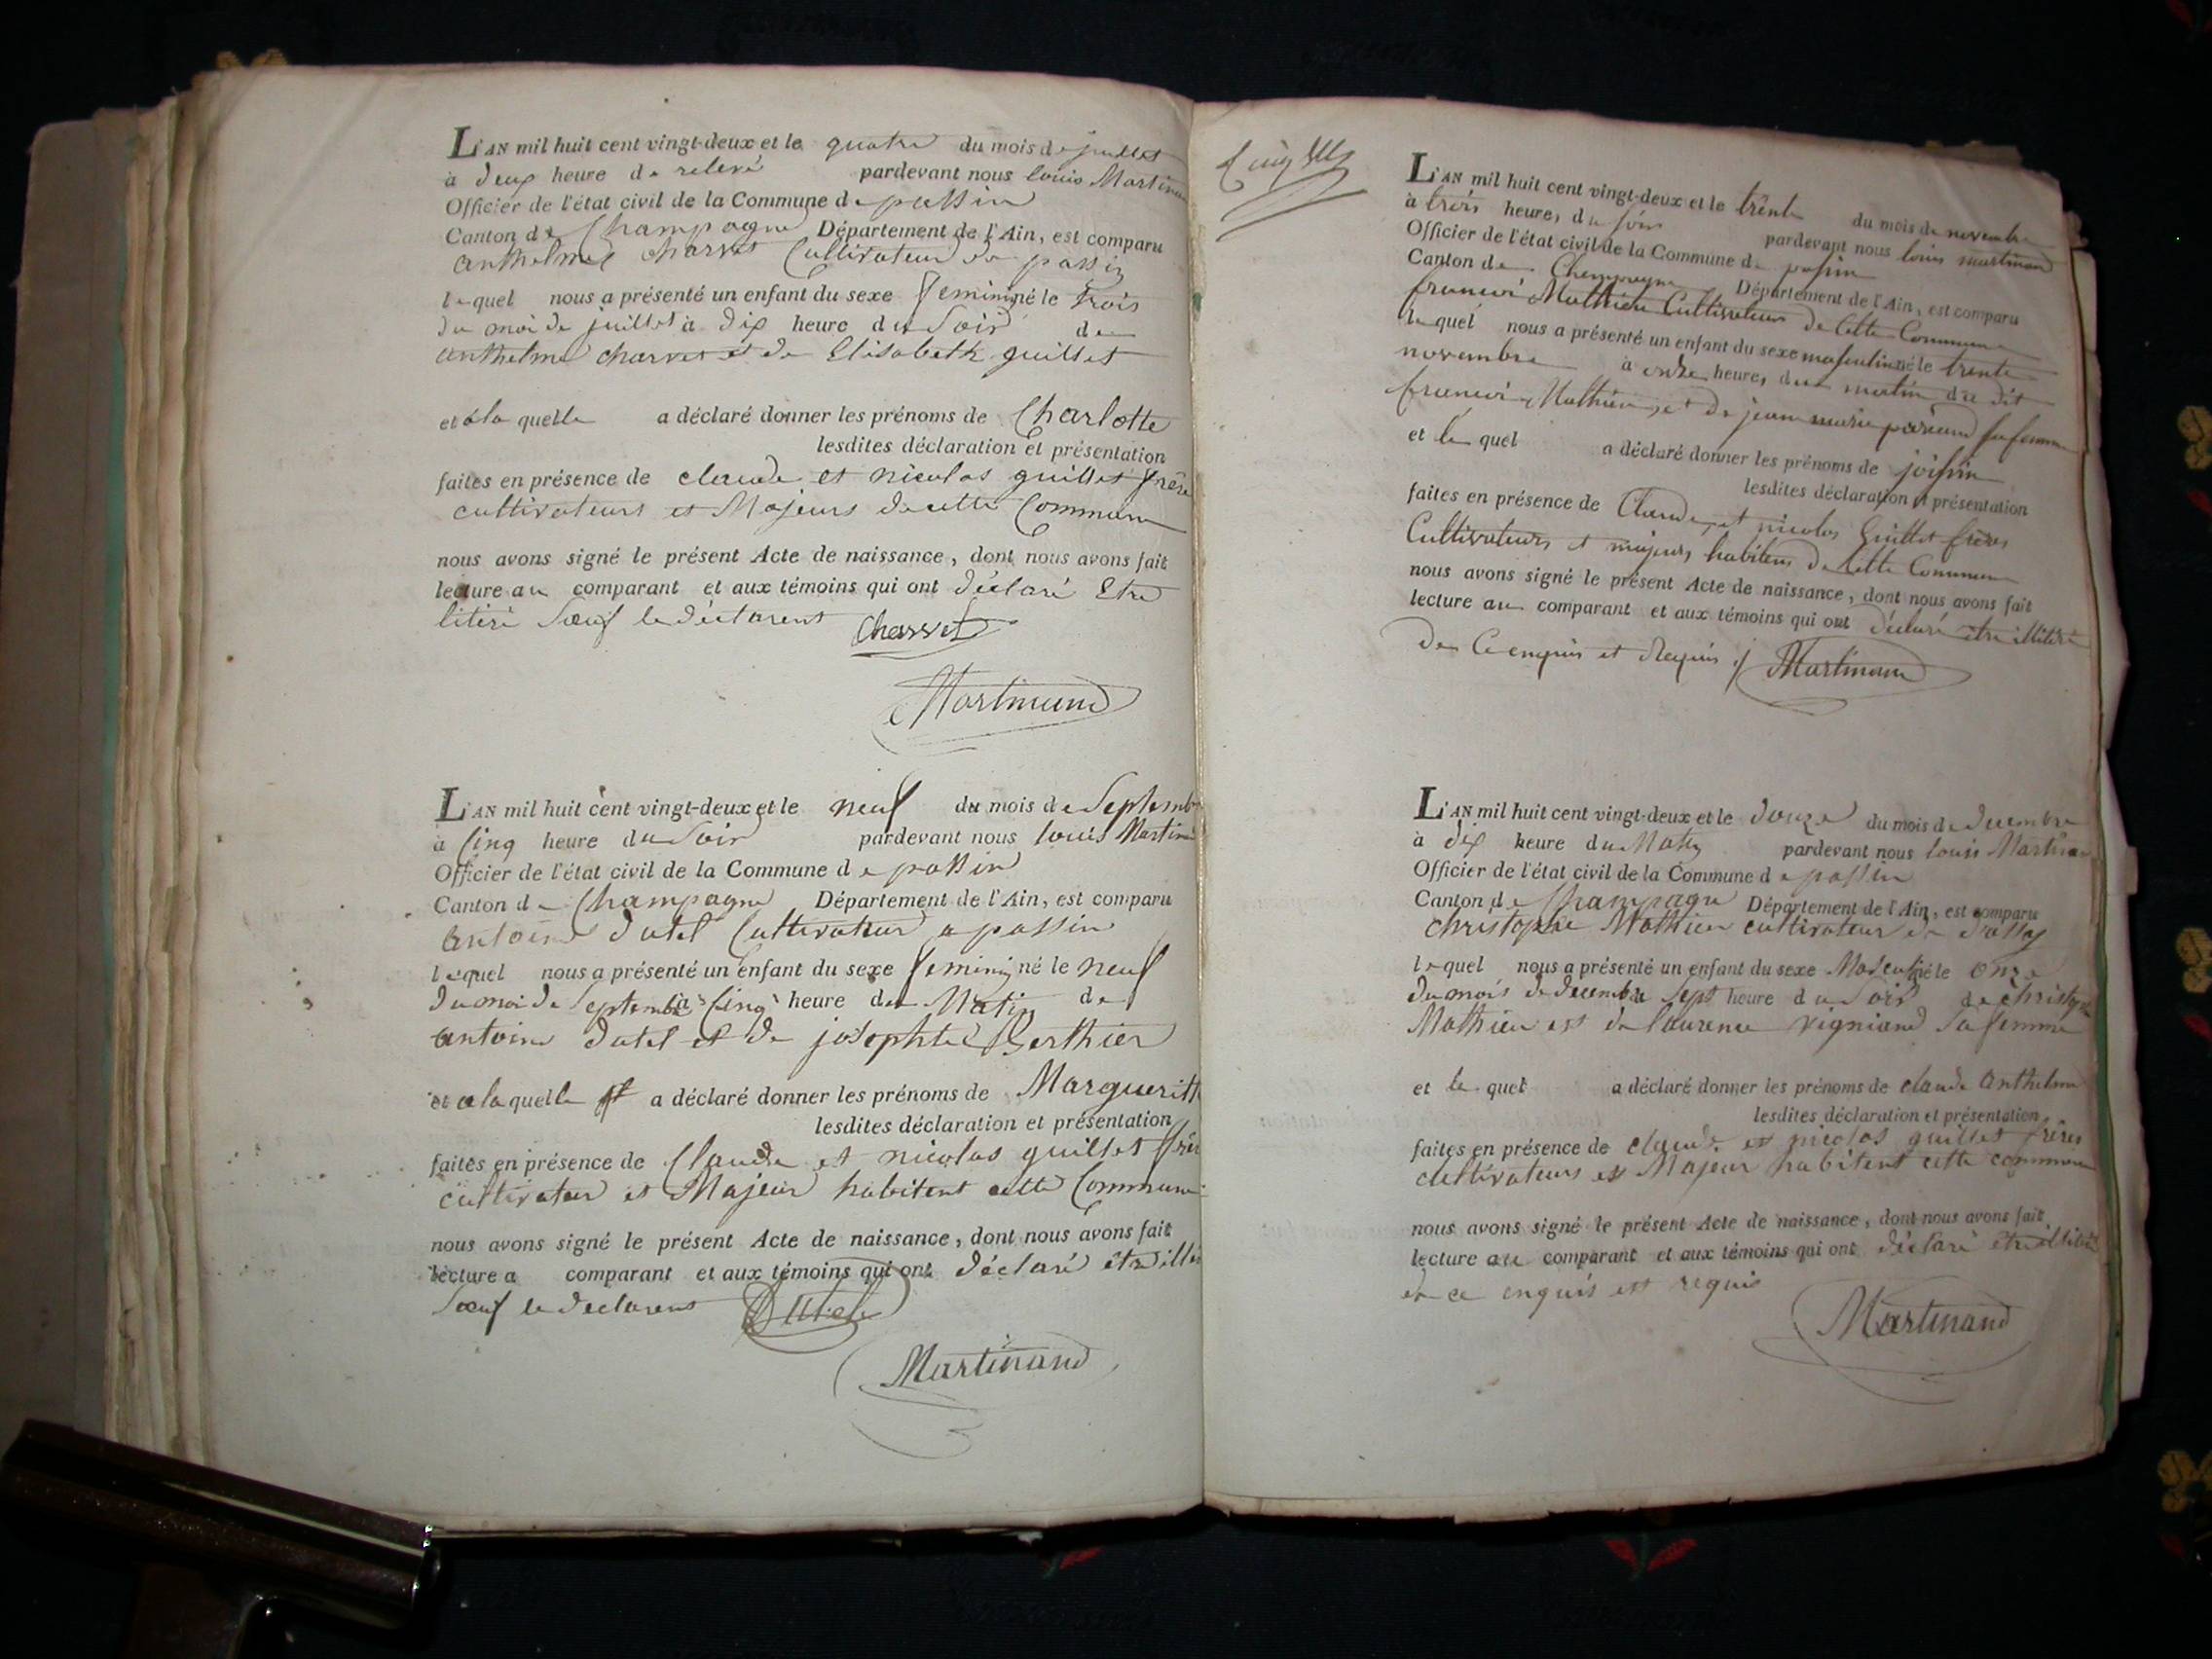 L'AN mil huit cent vingt-deux et le quatre du mois de juillet
à deux heure de relevé pardevant nous louis Martinand
Officier de l'état civil de la Commune de passin
Canton de Champagne Département de l'Ain, est comparu
anthelme charvet Cultivateur de passin
lequel nous a présenté un enfant du sexe feminin né le trois
du moi de juillet à dix heure du soir de
anthelme charvet et de Elisabeth guillet
et a la quelle a déclaré donner les prénoms de Charlotte
lesdites déclaration et présentation
faites en présence de claude et nicolas guillet frère
cultivateurs et Majeurs de cette Commune
nous avons signé le présent Acte de naissance, dont nous avons fait
lecture au comparant et aux témoins qui ont déclaré Etre
litéré sauf le déclarent Charvet
Martinand
L'AN mil huit cent vingt-deux et le neuf du mois de Septembre
à cinq heure du soir pardevant nous louis Martin
Officier de l'état civil de la Commune de passin
Canton de Champagne Département de l'Ain, est comparu
antoine dutel Cultivateur a passin
lequel nous a présenté un enfant du sexe feminin né le neuf
du moi de Septembre à cinq heure du Matin de
antoine dutel et de josephte Berthier
et a la quelle a déclaré donner les prénoms de Margueritte
lesdites déclaration et présentation
faites en présence de Claude et nicolas guillet frère
cultivateur et Majeur habitent cette Commune
nous avons signé le présent Acte de naissance, dont nous avons fait
lecture a comparant et aux témoins qui ont déclaré être illi
sauf le declarent Dutel
Martinand
L'AN mil huit cent vingt-deux et le trente du mois de novembre
à trois heure, du soir pardevant nous louis martinand
Officier de l'état civil de la Commune de passin
Canton de Champagne Département de l'Ain, est comparu
francoi Mathieu Cultivateur de Cette Commune
lequel nous a présenté un enfant du sexe masculin né le trente
novembre à onze heure, du matin du dit
francoi Mathieu, et de jeanmarie sa femme
et le quel a déclaré donner les prénoms de
lesdites déclaration et présentation
faites en présence de Claude, et nicolas Guillet frères
Cultivateurs et majeurs, habitens de Cette Commune
nous avons signé le présent Acte de naissance, dont nous avons fait
lecture au comparant et aux témoins qui ont déclaré être illitéré
de Ce enquis et Requis Martinand
L'AN mil huit cent vingt-deux et le douze du mois de decembre
à dix heure du Matin pardevant nous louis Martinand
Officier de l'état civil de la Commune de passin
Canton de Champagne Département de l'Ain, est comparu
christophe Mathieu cultivateur de
lequel nous a présenté un enfant du sexe Masculin né le onze
du mois de decembre sept heure du soir de christophe
Mathieu et de laurence vigniand sa femme
et le quel a déclaré donner les prénoms de claude anthelme
lesdites déclaration et présentation
faites en présence de claude et nicolas guillet frères
cultivateurs et Majeur habitent cette commune
nous avons signé le présent Acte de naissance, dont nous avons fait
lecture au comparant et aux témoins qui ont déclaré être illitéré
de ce enquis et requis
Martinand